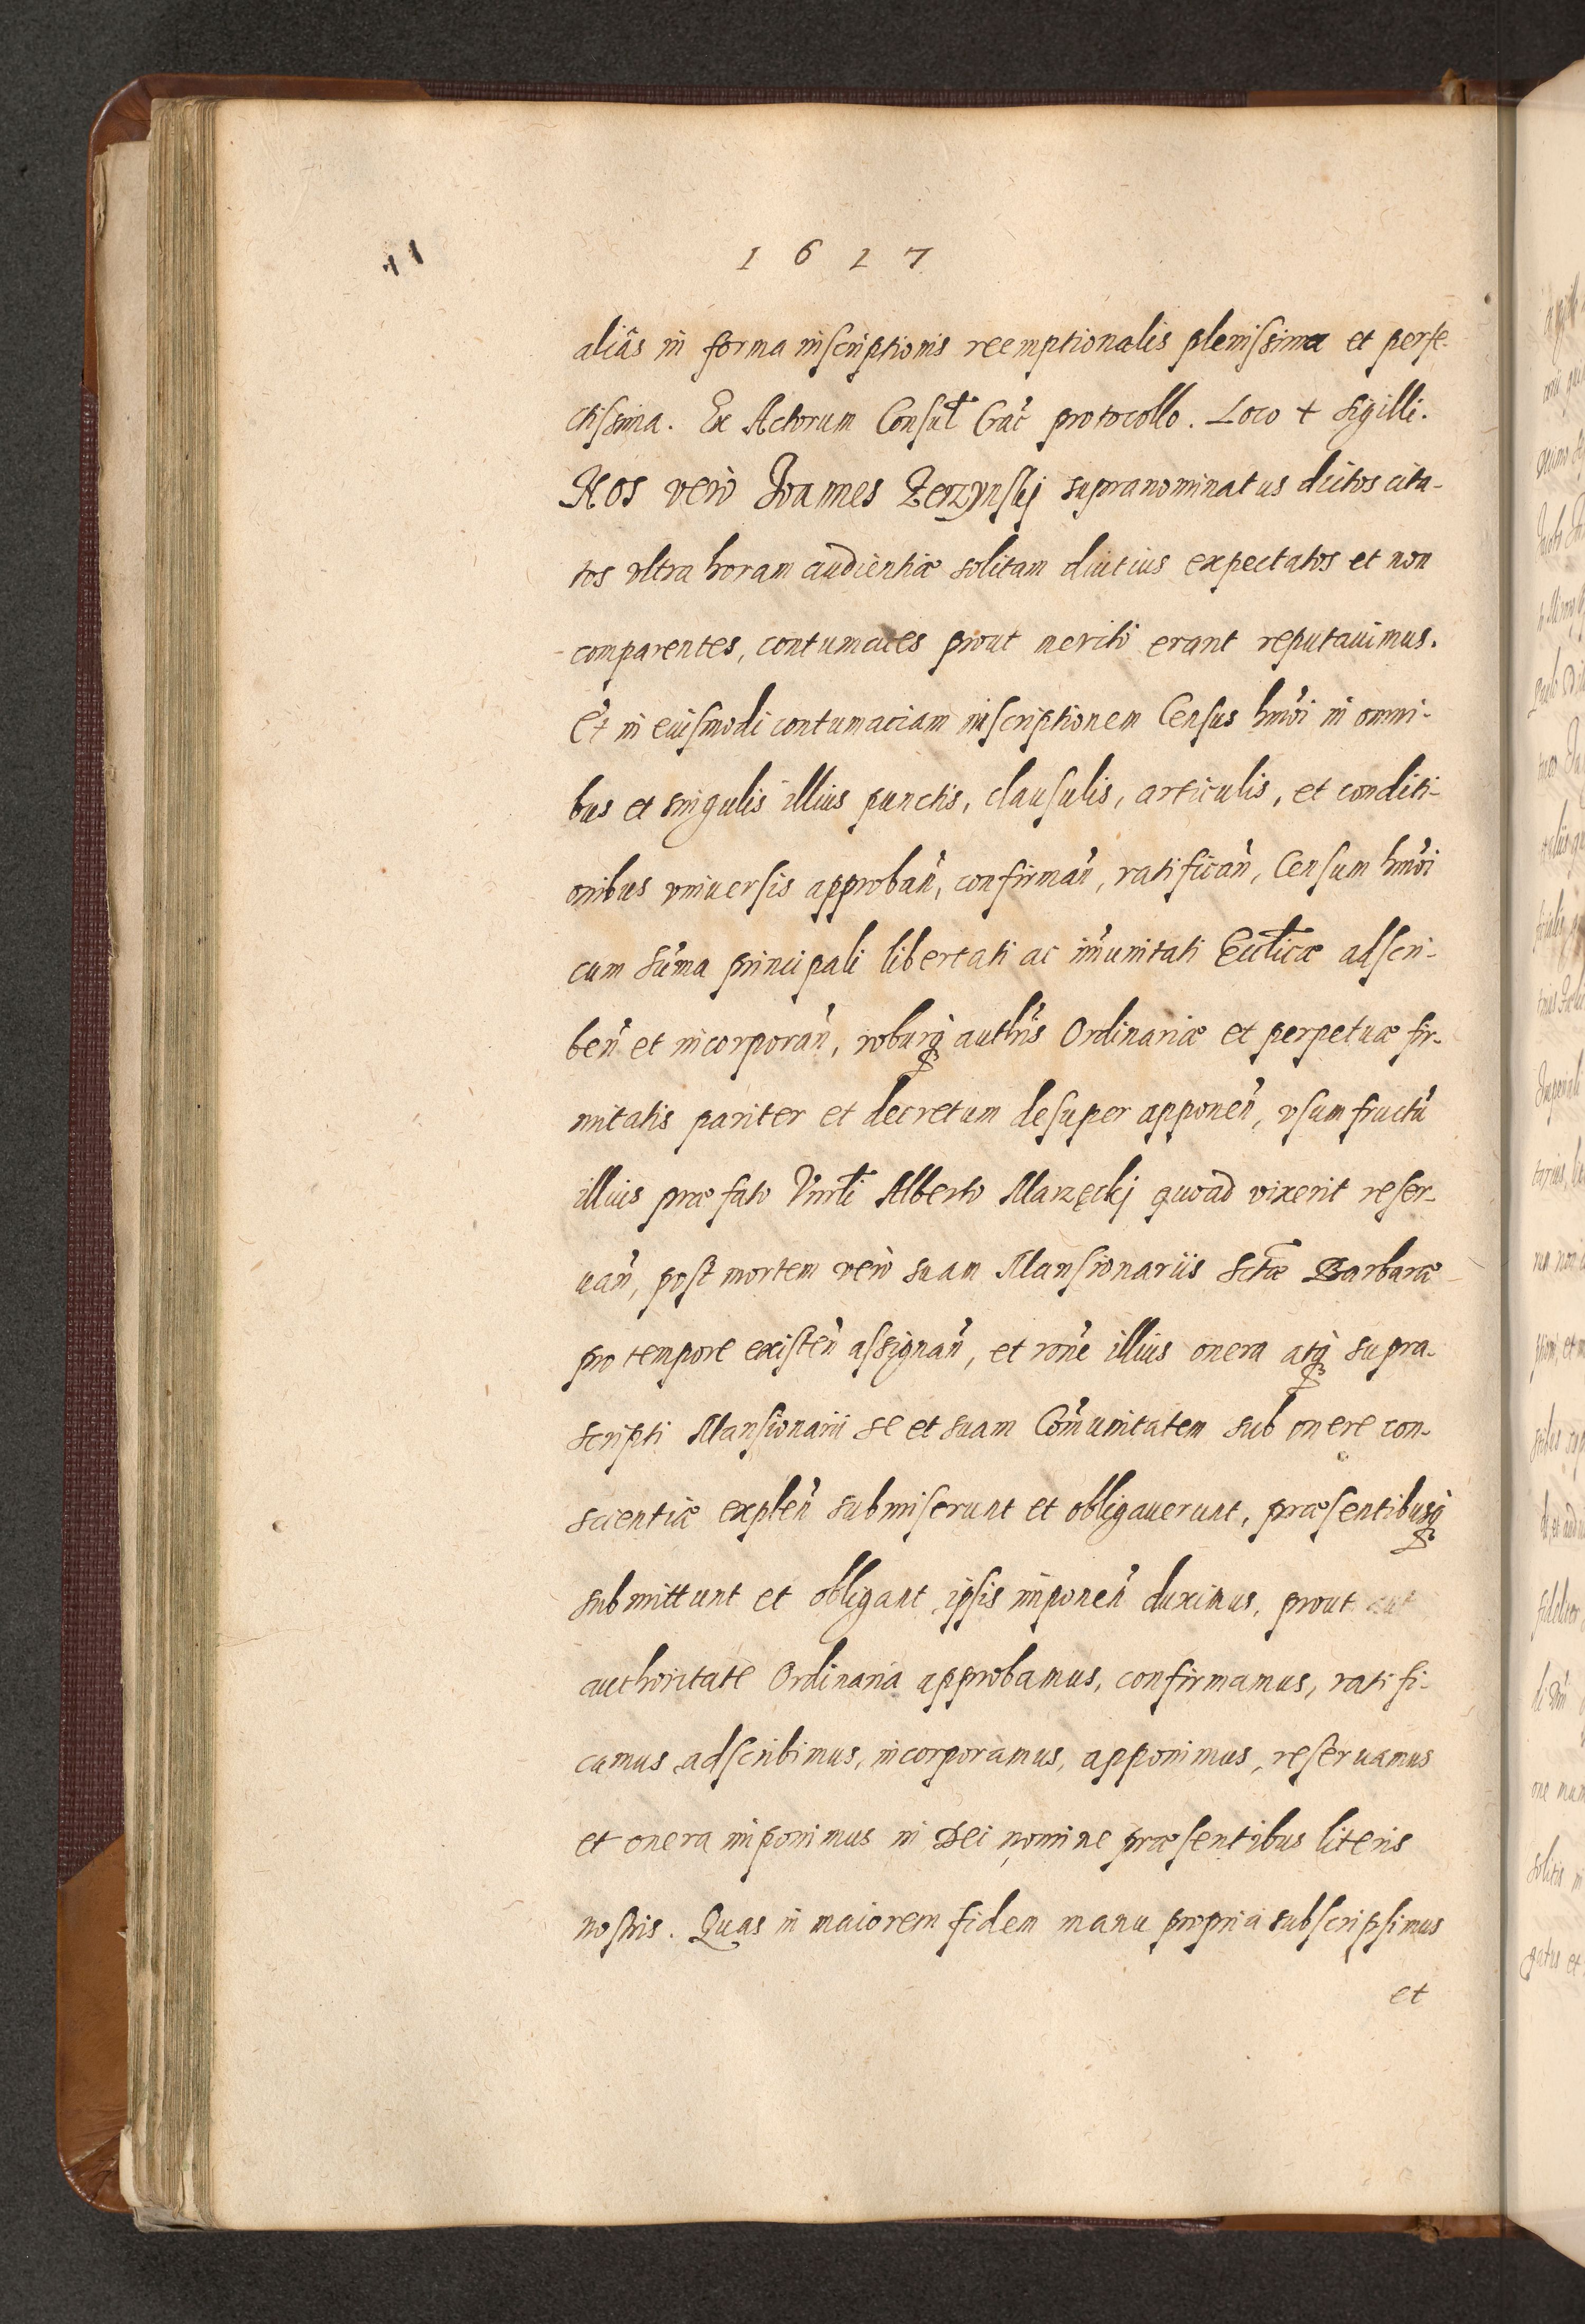 1 6 1 7
aliâs in forma inscriptionis reemptionalis plenissima et perfe-
ctissima. Ex Actorum Consul̃ Crac̃ protocollo. Loco + sigilli.
Nos verò Joannes Zerzynskj supranominatus dictos cita-
tos vltra horam audientiæ solitam diutius expectatos et non
comparentes, contumaces prout meritò erant reputauimus.
Et in eiusmodi contumaciam inscriptionem Census hm̃oi in omni-
bus et singulis illius punctis, clausulis, articulis, et conditi-
onibus vniuersis approbañ, confirmañ, ratificañ, Censum hm̃oi
cum sum̃a principali libertati ac im̃unitati Eccl̃icæ adscri-
beñ et incorporañ, roburq̃ auth̃ris Ordinariæ et perpetuæ fir-
mitatis pariter et decretum desuper apponeñ, vsum fructũ
illius præfato Vnrl̃i Alberto Marzęckj quoad vixerit reser-
uañ, post mortem verò suam Mansionariis Sctæ̃ Barbaræ
pro tempore existeñ assignañ, et rõne illius onera atq̃ supra-
scripti Mansionarii se et suam Com̃unitatem sub onere con-
scientiæ expleñ submiserunt et obligauerunt, præsentibusq̃
submittunt et obligant ipsis imponeñ duximus, prout
authoritate Ordinaria approbamus, confirmamus, ratifi-
camus adscribimus, incorporamus, apponimus, reseruamus
et onera imponimus in Dei nomine præsentibus literis
nostris. Quas in maiorem fidem manu propria subscripsimus
et